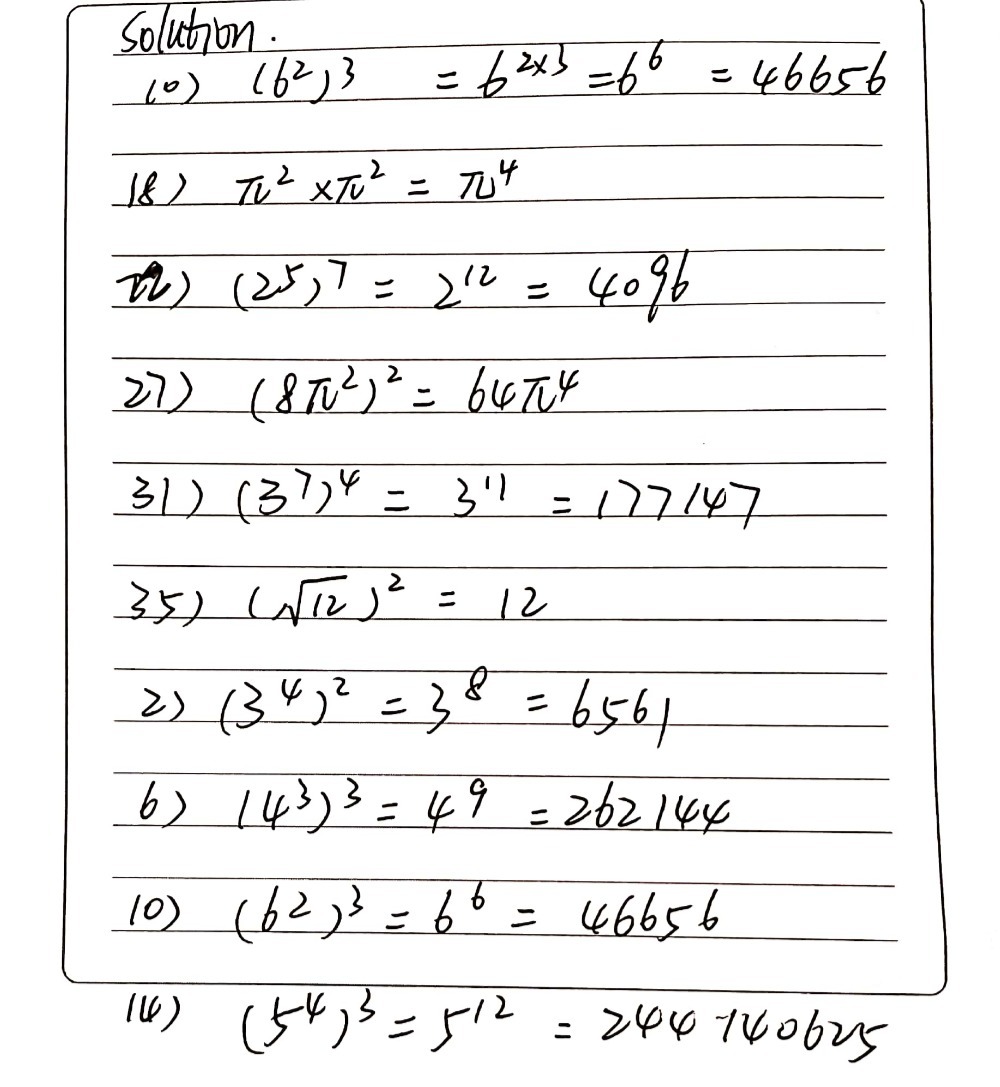 Solution.
10) (6²)³ = 6²ˣ³ = 6⁶ = 46656
18) π² × π² = π⁴
22) (2⁵)⁷ = 2¹² = 4096
27) (8π²)² = 64π⁴
31) (3⁷)⁴ = 3¹¹ = 177147
35) (√12)² = 12
2) (3⁴)² = 3⁸ = 6561
6) (4³)³ = 4⁹ = 262144
10) (6²)³ = 6⁶ = 46656
14) (5⁴)³ = 5¹² = 244140625